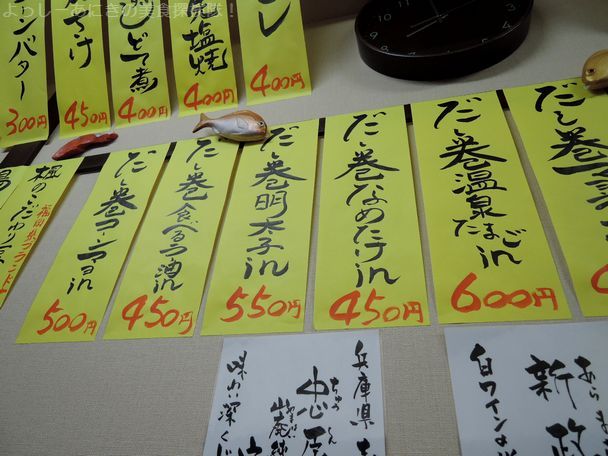 よっしーあにきの美食探検隊！
ンバター
300円
450円
どて煮
400円
塩焼
400円
レ
400円
福岡県ブランド
だし巻
in
500円
だし巻食べるラー油in
450円
だし巻明太子in
550円
だし巻なめたけin
450円
だし巻温泉たまごin
600円
だし巻
兵庫県
ちゅう
味わい深く
あらま
新政
白ワインの